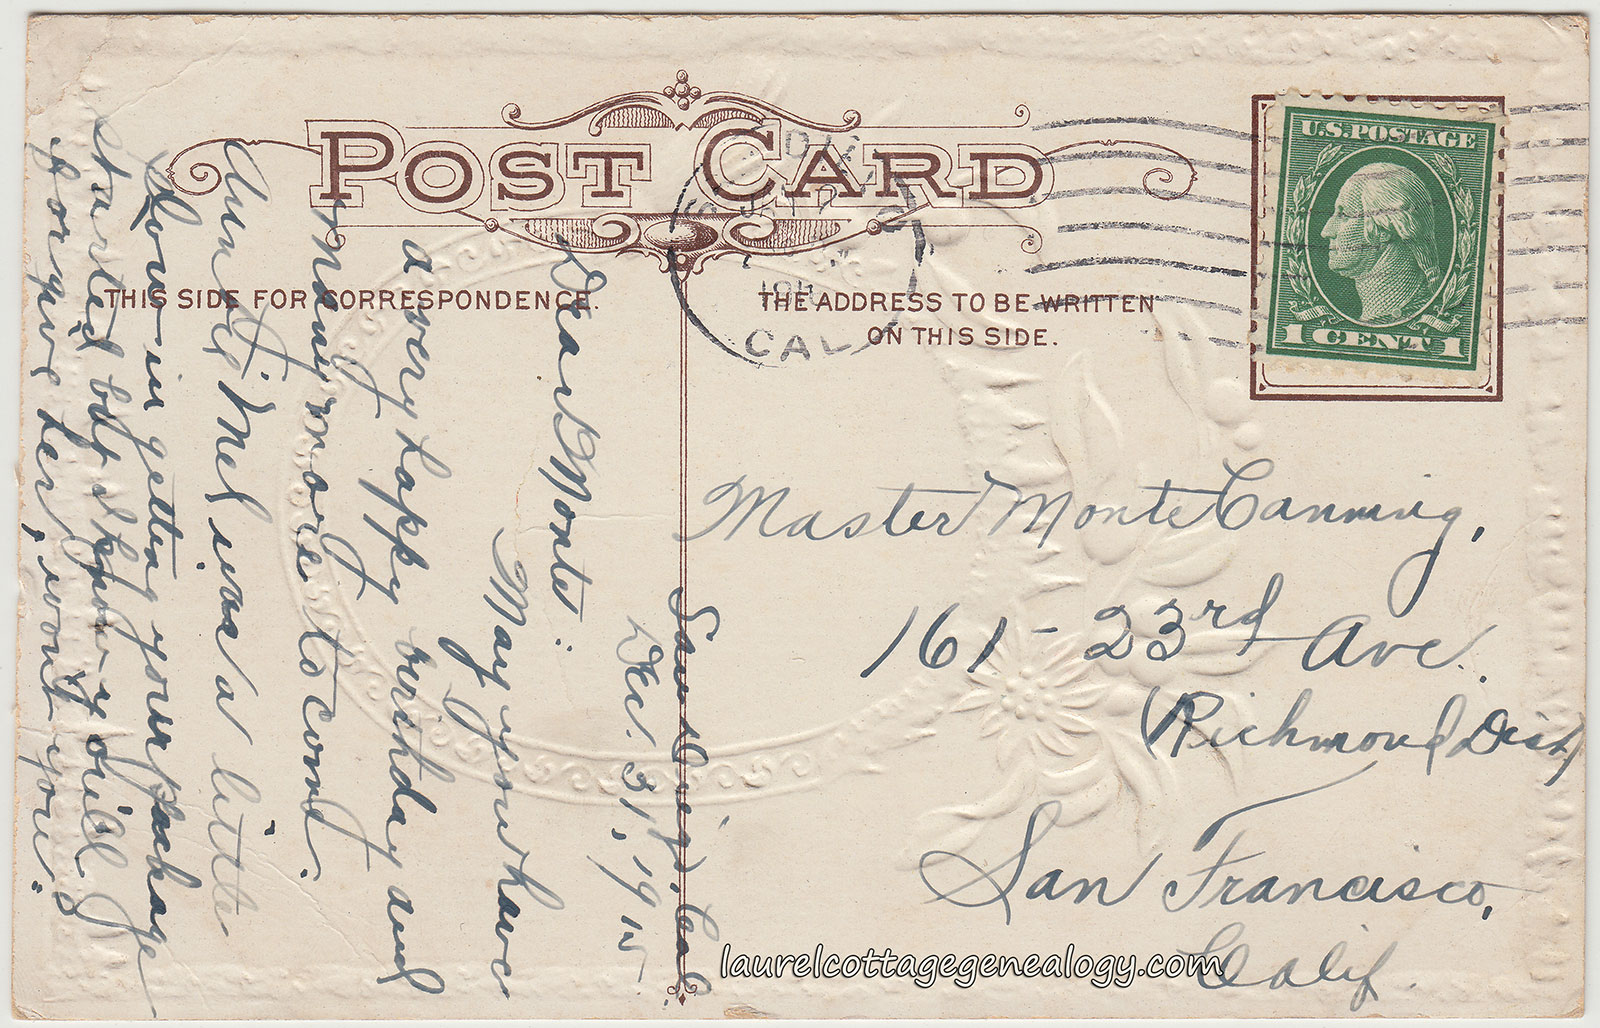 POST CARD
THIS SIDE FOR CORRESPONDENCE.
THE ADDRESS TO BE WRITTEN
ON THIS SIDE.
U.S. POSTAGE
1 CENT 1
CAL
San Diego, Cal
Dec. 31, 1915
Dear Monte:
May you have
a very happy birthday and
many more to come.
Auntie Mel was a little
slow in getting your package
started but I know you'll
forgive her, won't you?
Master Monte Canning,
161-23rd Ave.
(Richmond Dist)
San Francisco,
Calif.
laurelcottagegenealogy.com